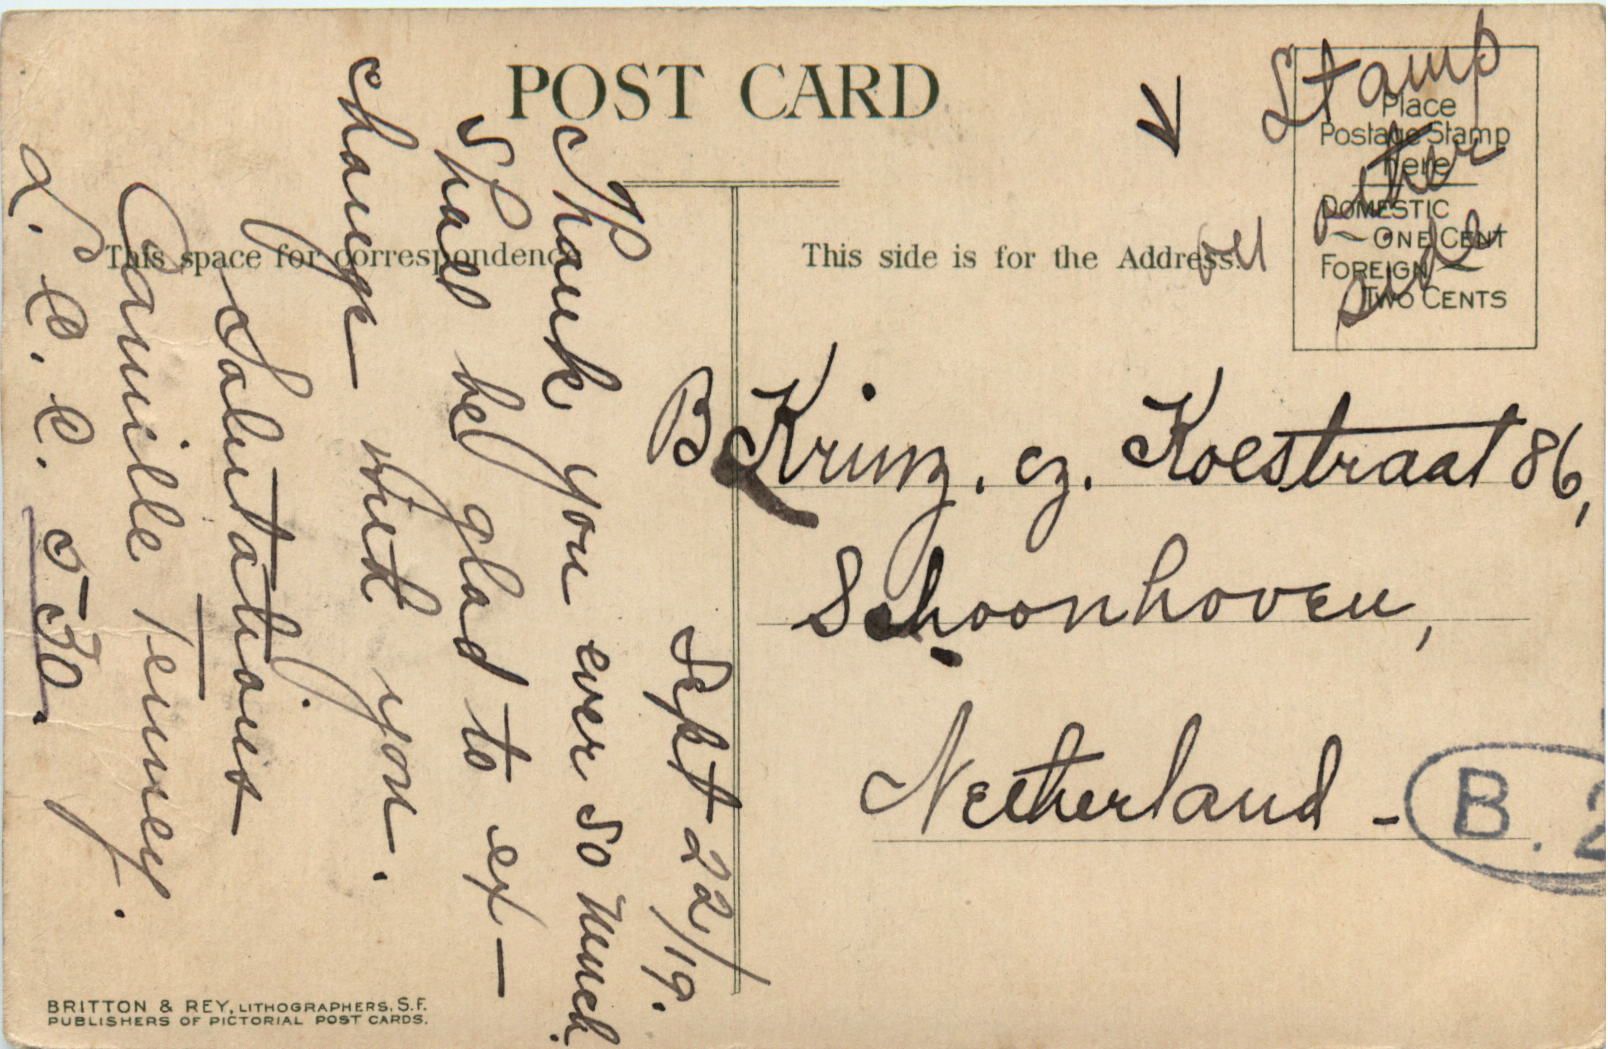 POST CARD
Stamp
on other
side
Place
Postage Stamp
Here
DOMESTIC
ONE CENT
FOREIGN
TWO CENTS
This space for correspondence
This side is for the Address.
Sept 22/19.
Thank you ever so much.
Shall be glad to ex-
change with you.
Salutations
Camille Tenney.
L. C. C. 530.
B Krinz. cz. Koestraat 86,
Schoonhoven,
Neetherland -
B. 2
BRITTON & REY, LITHOGRAPHERS, S.F.
PUBLISHERS OF PICTORIAL POST CARDS.